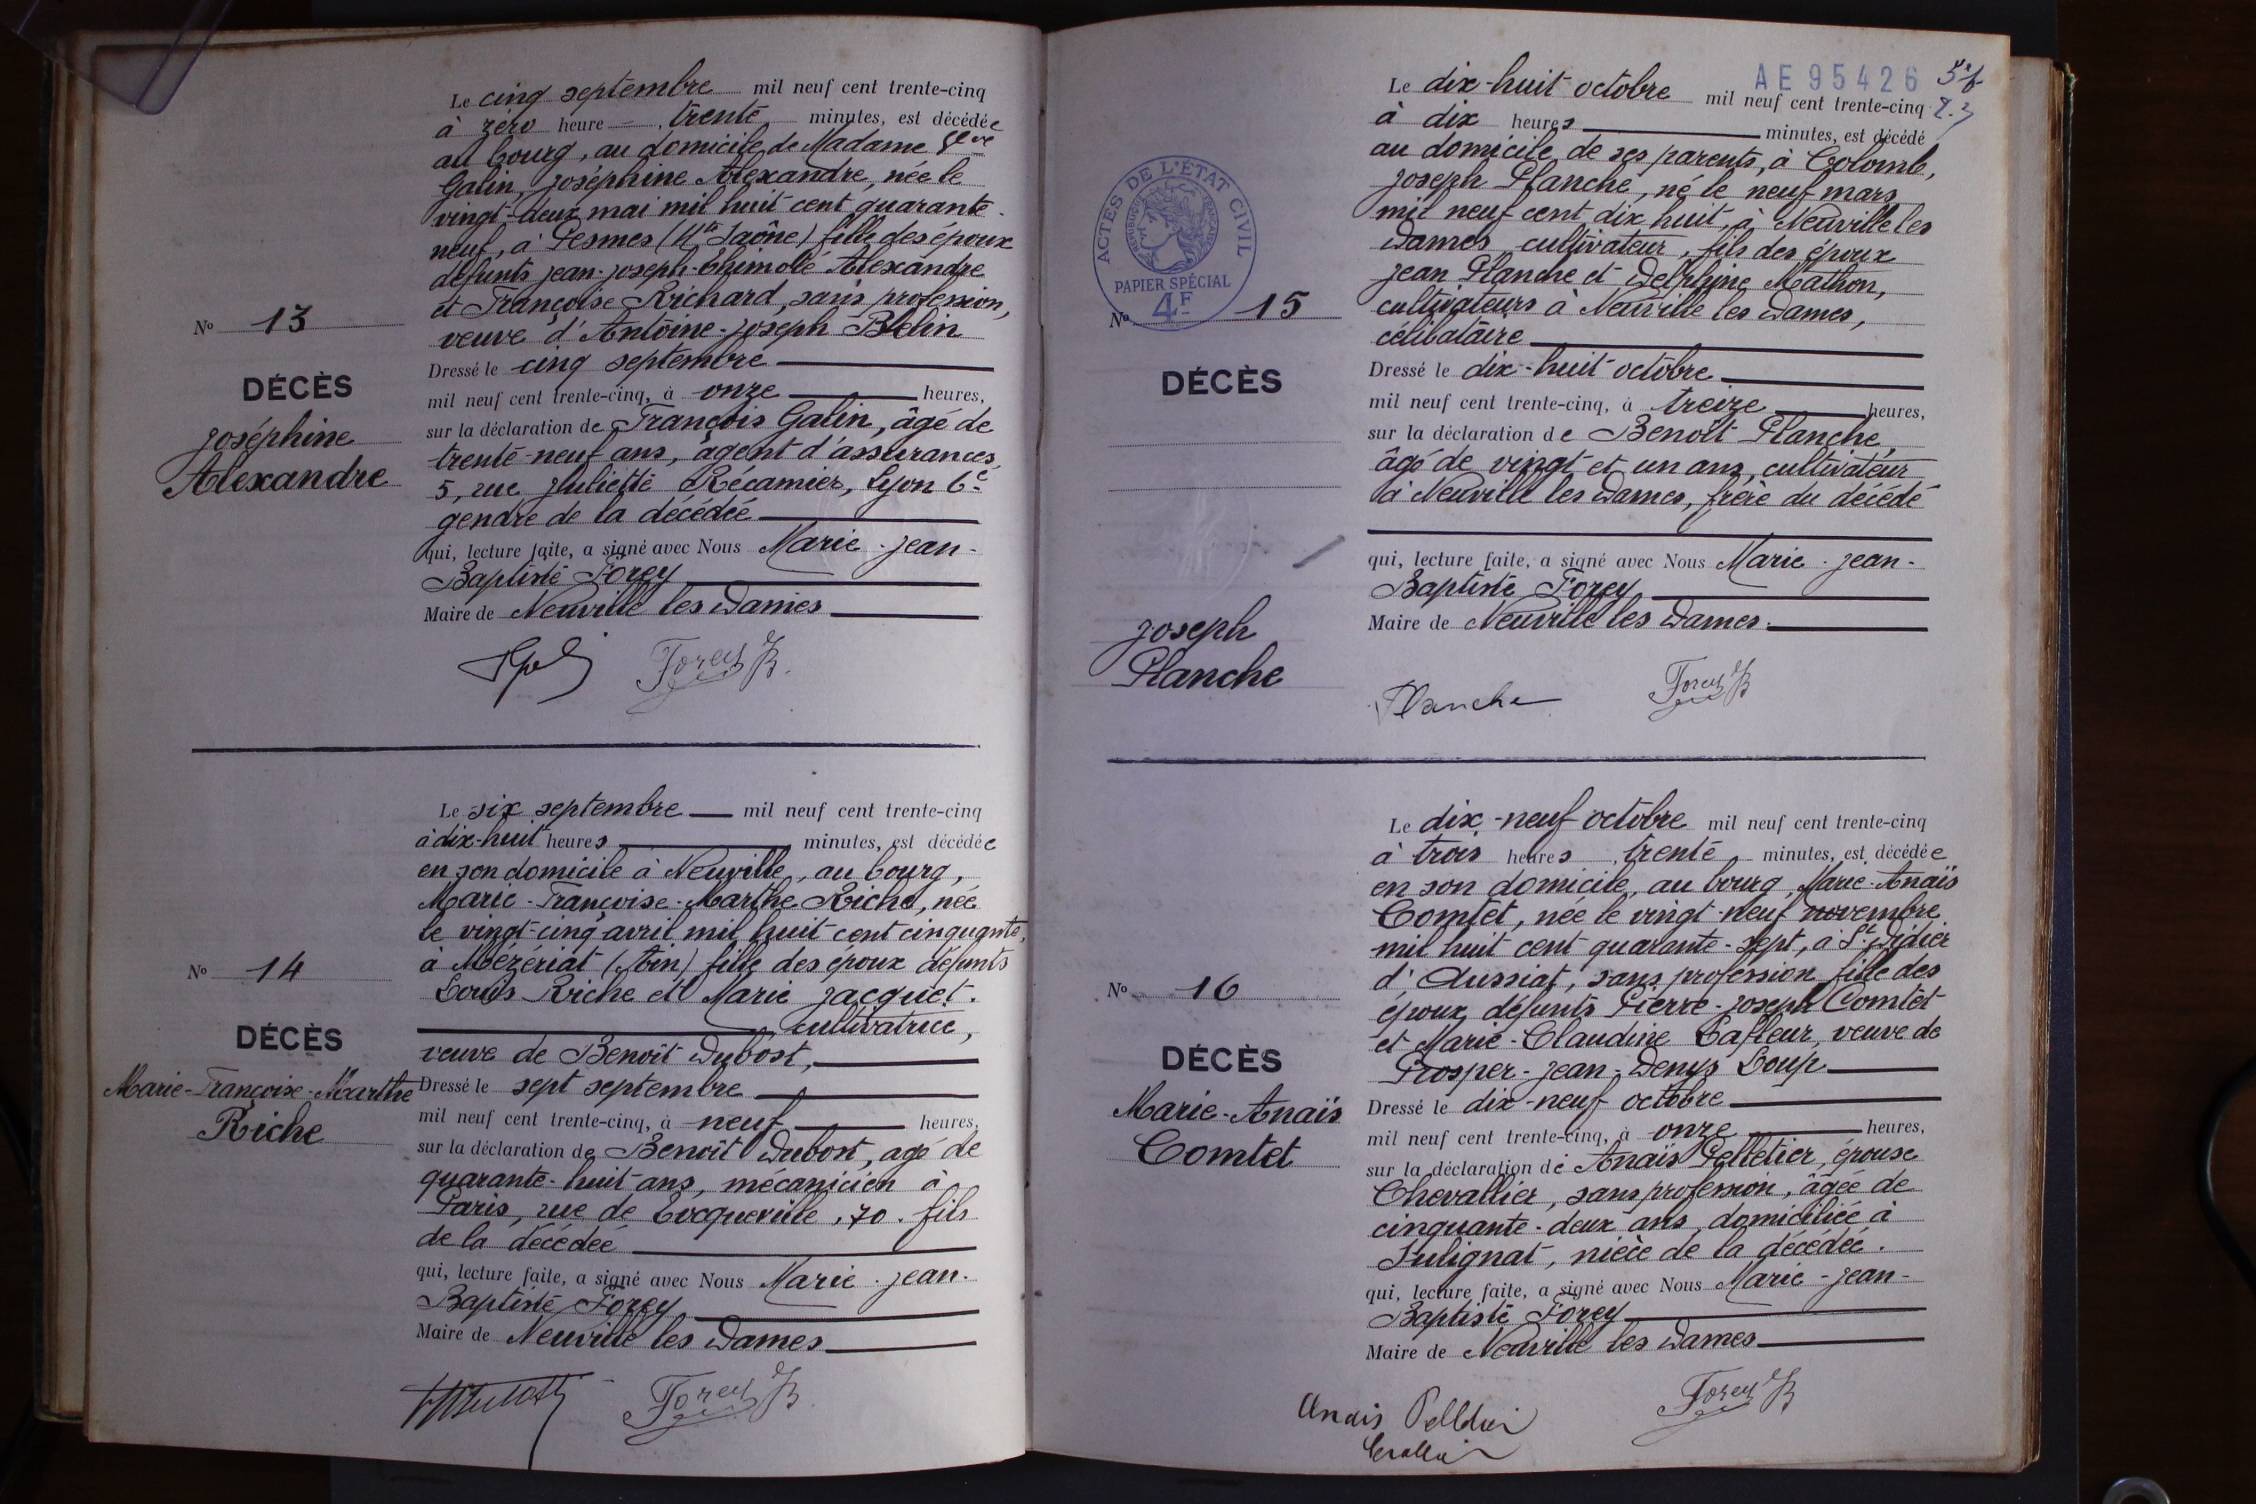 Le cinq septembre mil neuf cent trente-cinq
à zéro heure trente minutes, est décédée
au bourg, au domicile de Madame Vve
Galin, Joséphine Alexandre, née le
vingt-deux mai mil huit cent quarante-
neuf, à Pesmes (Hte Saône) fille des époux
défunts Jean-Joseph-Thimoté Alexandre
et Françoise Richard, sans profession,
veuve d'Antoine-Joseph Blelin
Dressé le cinq septembre
mil neuf cent trente-cinq, à onze heures,
sur la déclaration de François Galin, âgé de
trente-neuf ans, agent d'assurances,
5, rue Juliette Récamier, Lyon 6e
gendre de la décédée
qui, lecture faite, a signé avec Nous Marie-Jean-
Baptiste Forey
Maire de Neuville les Dames
Forey JB.
No 13
DÉCÈS
Joséphine
Alexandre
Le six septembre mil neuf cent trente-cinq
à dix-huit heures minutes, est décédée
en son domicile à Neuville, au bourg,
Marie-Françoise-Marthe Riche, née
le vingt-cinq avril mil huit cent cinquante,
à Mézériat (Ain) fille des époux défunts
Louis Riche et Marie Jacquet.
cultivatrice,
veuve de Benoît Dubost,
Dressé le sept septembre
mil neuf cent trente-cinq, à neuf heures,
sur la déclaration de Benoît Dubost, agé de
quarante-huit ans, mécanicien à
Paris, rue de Tocqueville, 70. fils
de la décédée
qui, lecture faite, a signé avec Nous Marie-Jean-
Baptiste Forey
Maire de Neuville les Dames
Forey JB
No 14
DÉCÈS
Marie-Françoise-Marthe
Riche
AE95426
Le dix-huit octobre mil neuf cent trente-cinq
à dix heures minutes, est décédé
au domicile de ses parents, à Colomb,
Joseph Planche, né le neuf mars
mil neuf cent dix huit, à Neuville les
Dames, cultivateur, fils des époux
Jean Planche et Delphine Mathon,
cultivateurs à Neuville les Dames,
célibataire
Dressé le dix-huit octobre
mil neuf cent trente-cinq, à treize heures,
sur la déclaration de Benoît Planche,
âgé de vingt et un ans, cultivateur
à Neuville les Dames, frère du décédé
qui, lecture faite, a signé avec Nous Marie-Jean-
Baptiste Forey
Maire de Neuville les Dames.
Planche Forey JB
ACTES DE L'ÉTAT CIVIL
RÉPUBLIQUE FRANÇAISE
PAPIER SPÉCIAL
4F
No 15
DÉCÈS
Joseph
Planche
Le dix-neuf octobre mil neuf cent trente-cinq
à trois heures trente minutes, est décédée
en son domicile, au bourg, Marie-Anaïs
Comtet, née le vingt-neuf novembre
mil huit cent quarante-sept, à St Didier
d'Aussiat, sans profession, fille des
époux défunts Pierre-Joseph Comtet
et Marie-Claudine Lafleur, veuve de
Prosper-Jean-Denys Loup
Dressé le dix-neuf octobre
mil neuf cent trente-cinq, à onze heures,
sur la déclaration de Anaïs Pelletier, épouse
Chevallier, sans profession, âgée de
cinquante-deux ans, domiciliée à
Sulignat, nièce de la décédée.
qui, lecture faite, a signé avec Nous Marie-Jean-
Baptiste Forey
Maire de Neuville les Dames
Anaïs Pelletier Forey JB
No 16
DÉCÈS
Marie-Anaïs
Comtet